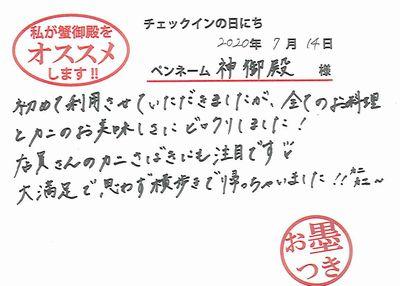 私が蟹御殿を
オススメ
します!!
チェックインの日にち
2020年 7月 14日
ペンネーム 神御殿 様
初めて利用させていただきましたが、全てのお料理
とカニのお美味しさにビックリしました!
店員さんのカニさばきにも注目です♡
大満足で、思わず横歩きで帰っちゃいました!!カニカニ〜
お墨
つき